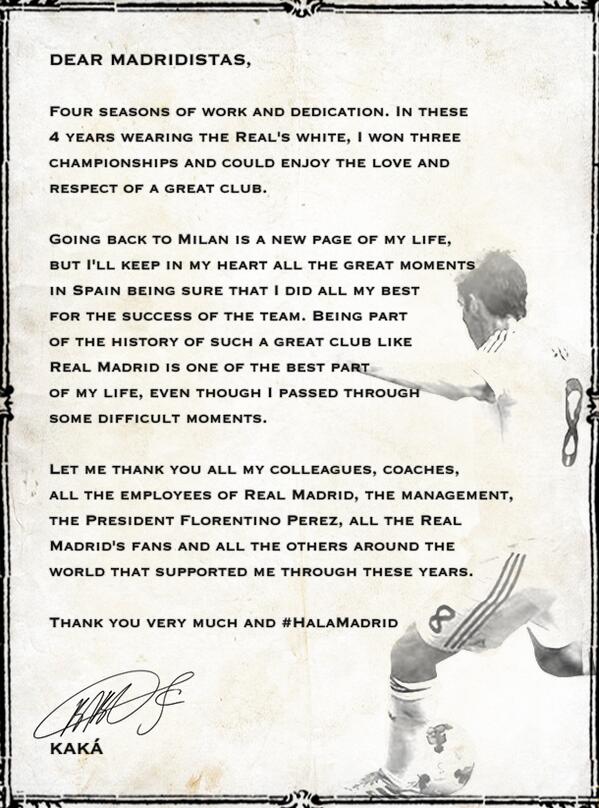 DEAR MADRIDISTAS,
FOUR SEASONS OF WORK AND DEDICATION. IN THESE
4 YEARS WEARING THE REAL'S WHITE, I WON THREE
CHAMPIONSHIPS AND COULD ENJOY THE LOVE AND
RESPECT OF A GREAT CLUB.
GOING BACK TO MILAN IS A NEW PAGE OF MY LIFE,
BUT I'LL KEEP IN MY HEART ALL THE GREAT MOMENTS
IN SPAIN BEING SURE THAT I DID ALL MY BEST
FOR THE SUCCESS OF THE TEAM. BEING PART
OF THE HISTORY OF SUCH A GREAT CLUB LIKE
REAL MADRID IS ONE OF THE BEST PART
OF MY LIFE, EVEN THOUGH I PASSED THROUGH
SOME DIFFICULT MOMENTS.
LET ME THANK YOU ALL MY COLLEAGUES, COACHES,
ALL THE EMPLOYEES OF REAL MADRID, THE MANAGEMENT,
THE PRESIDENT FLORENTINO PEREZ, ALL THE REAL
MADRID'S FANS AND ALL THE OTHERS AROUND THE
WORLD THAT SUPPORTED ME THROUGH THESE YEARS.
THANK YOU VERY MUCH AND #HALAMADRID
KAKÁ
8
8